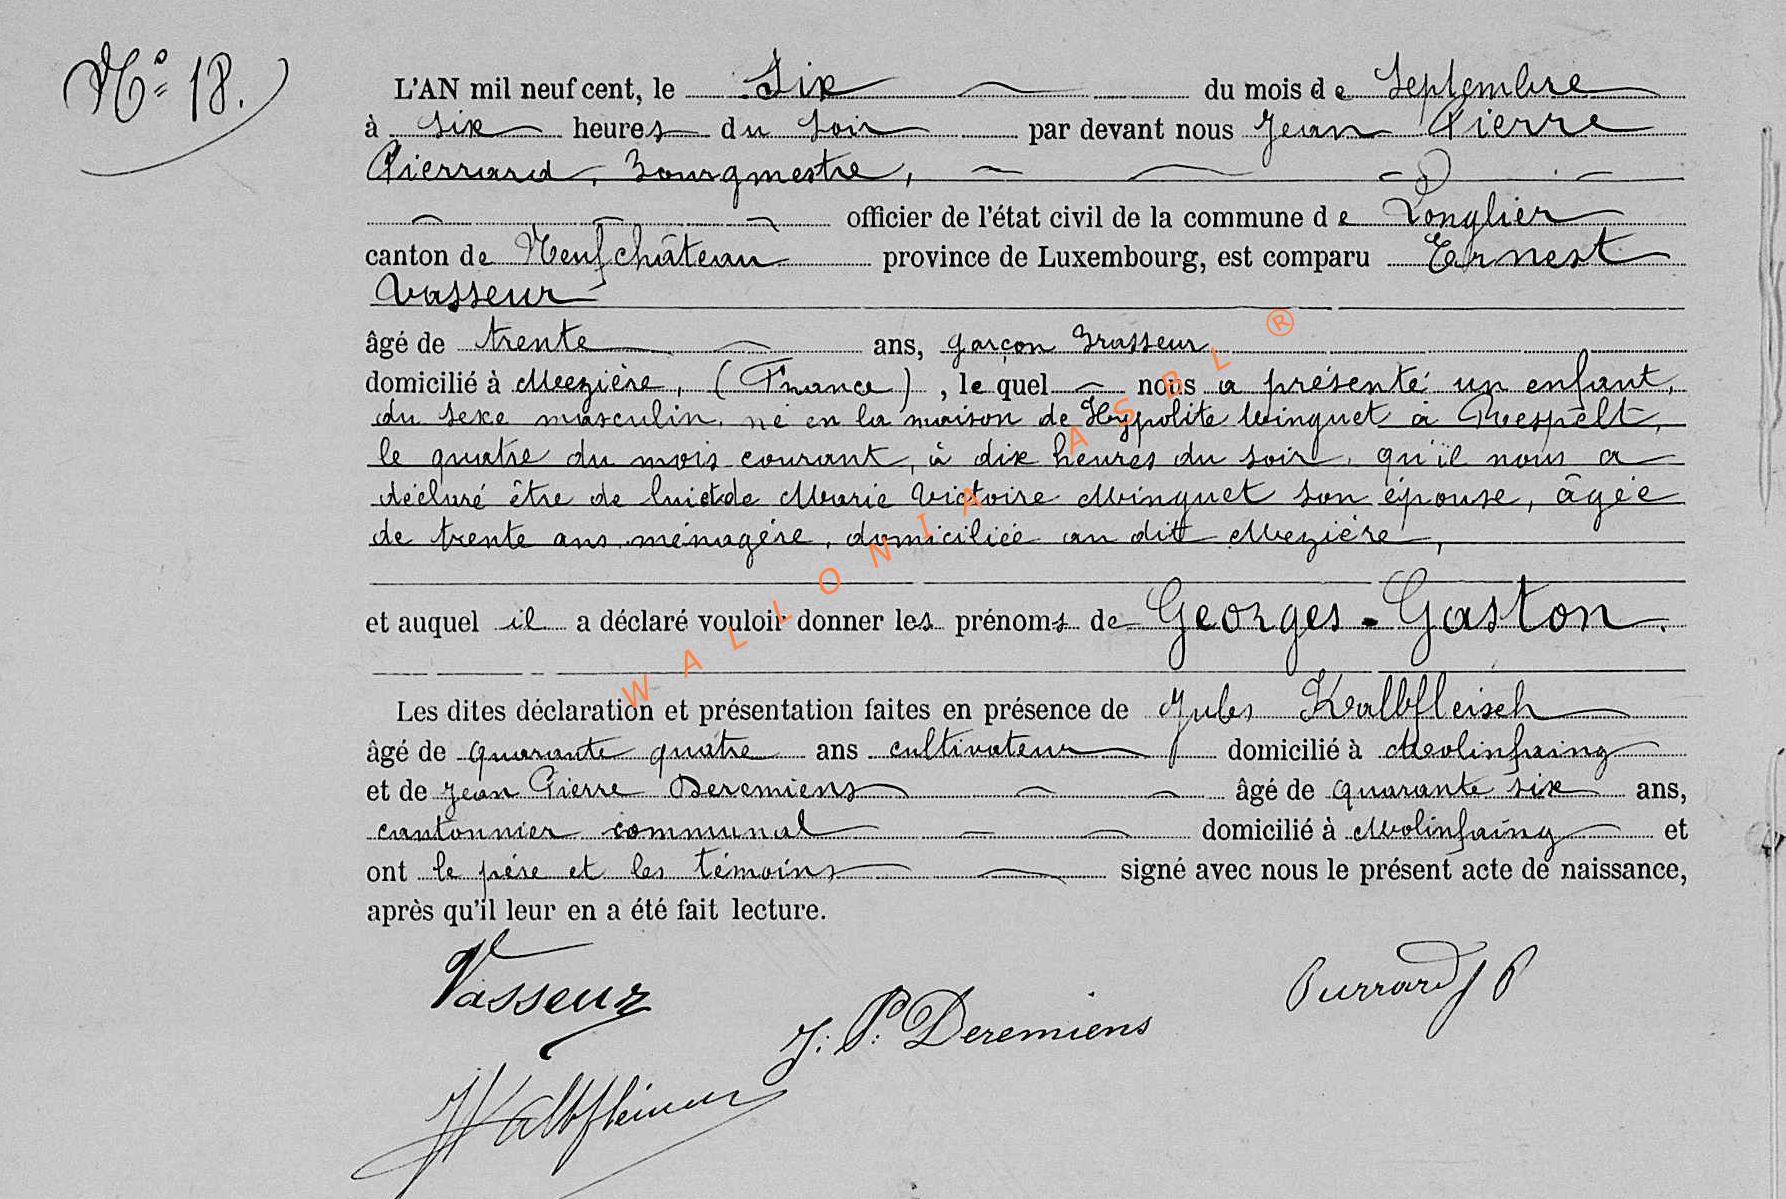 N° 18.
L'AN mil neuf cent, le Six du mois de Septembre
à six heures du soir par devant nous Jean Pierre
Pierrard, Bourgmestre,
officier de l'état civil de la commune de Longlier
canton de Neufchâteau province de Luxembourg, est comparu Ernest
Vasseur
âgé de trente ans, garçon Brasseur
domicilié à Mezière, (France), le quel nous a présenté un enfant,
du sexe masculin, né en la maison de Hyppolite Minguet à Respelt,
le quatre du mois courant, à dix heures du soir, qu'il nous a
déclaré être de lui et de Marie Victoire Minguet son épouse, âgée
de trente ans, ménagère, domiciliée au dit Mezière,
et auquel il a déclaré vouloir donner les prénoms de Georges-Gaston.
Les dites déclaration et présentation faites en présence de Jules Kalbfleisch
âgé de quarante quatre ans cultivateur domicilié à Molinfaing
et de Jean Pierre Deremiens âgé de quarante six ans,
cantonnier communal domicilié à Molinfaing et
ont le père et les témoins signé avec nous le présent acte de naissance,
après qu'il leur en a été fait lecture.
Vasseur
J. P. Deremiens
Pierrard J P
WALLONIA ASBL ®